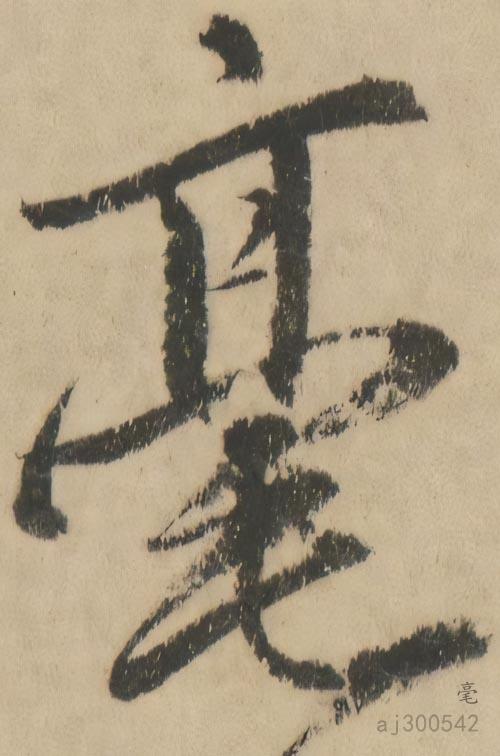 毫
毫
aj300542